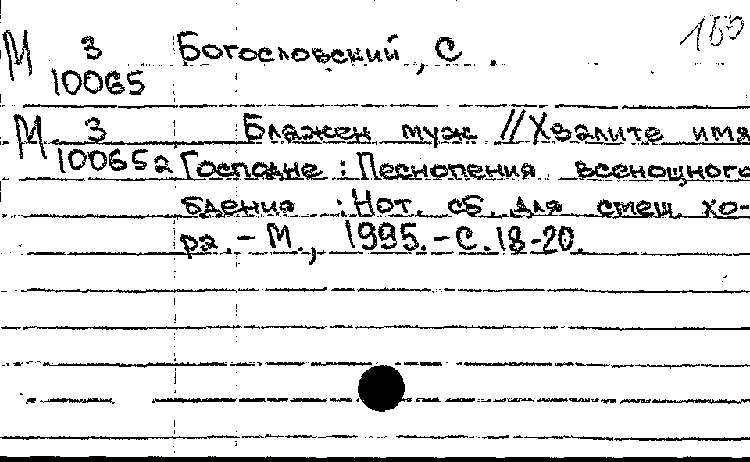 155
М З Богословский, С.
10065
М З Блажен муж // Хвалите имя
10065а Господне : Песнопения всенощного
бдения : Нот. сб. для смеш. хо-
ра. - М., 1995. - С. 18-20.